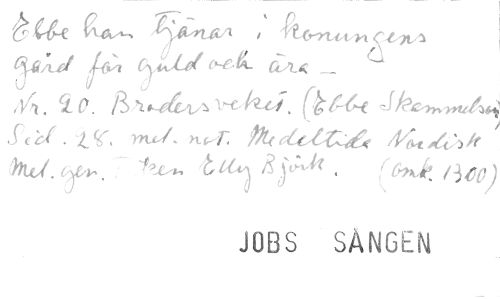 Ebbe han tjänar i konungens
gård för guld och ära –
Nr. 20. Brodersveket. (Ebbe Skammelson)
Sid. 28. mel. not. Medeltida Nordisk
Mel. gen. Elly Björk. (omk. 1300)
JOBS SÅNGEN